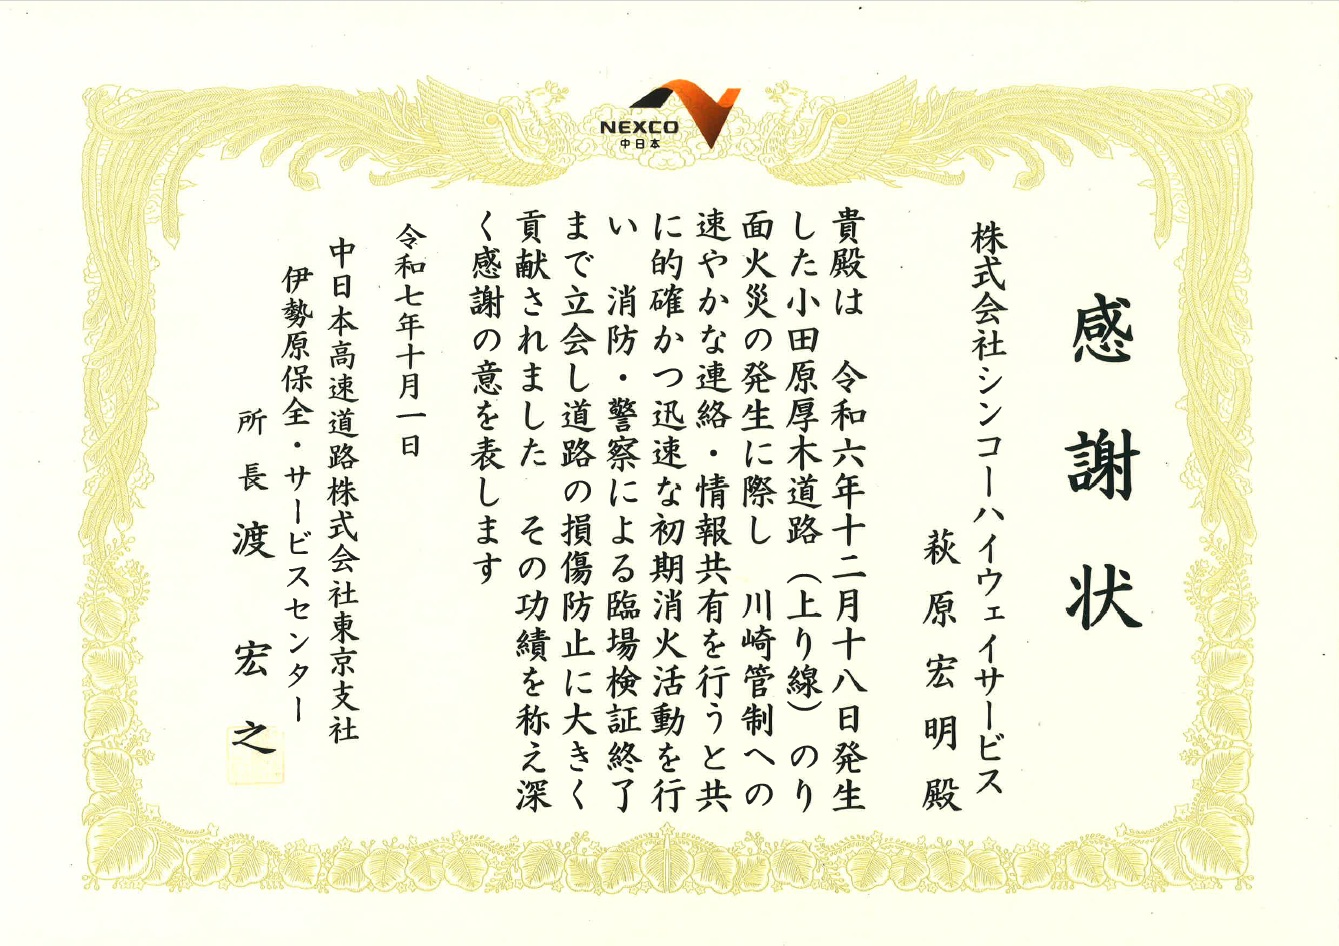 NEXCO
中日本
感謝状
株式会社シンコーハイウェイサービス
萩原宏明殿
貴殿は　令和六年十二月十八日発生
した小田原厚木道路（上り線）のり
面火災の発生に際し　川崎管制への
速やかな連絡・情報共有を行うと共
に的確かつ迅速な初期消火活動を行
い　消防・警察による臨場検証終了
まで立会し道路の損傷防止に大きく
貢献されました　その功績を称え深
く感謝の意を表します
令和七年十月一日
中日本高速道路株式会社東京支社
伊勢原保全・サービスセンター
所長 渡　宏之